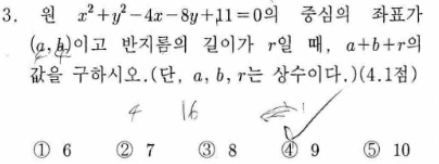 3. 원 x²+y²-4x-8y+11=0의 중심의 좌표가
(a, b)이고 반지름의 길이가 r일 때, a+b+r의
값을 구하시오.(단, a, b, r는 상수이다.)(4.1점)
4 16
① 6 ② 7 ③ 8 ④ 9 ⑤ 10